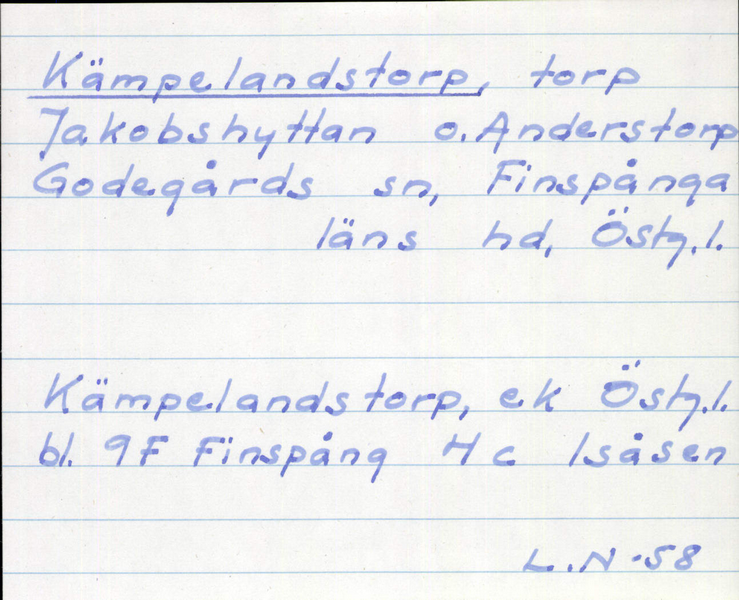 Kämpelandstorp, torp
Jakobshyttan o. Anderstorp
Godegårds sn, Finspånga
läns hd, Östg.l.
Kämpelandstorp, ek Östg.l.
bl. 9F Finspång H c Isåsen
L.N-58